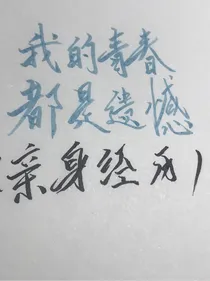 我的青春
都是遗憾
亲身经历)